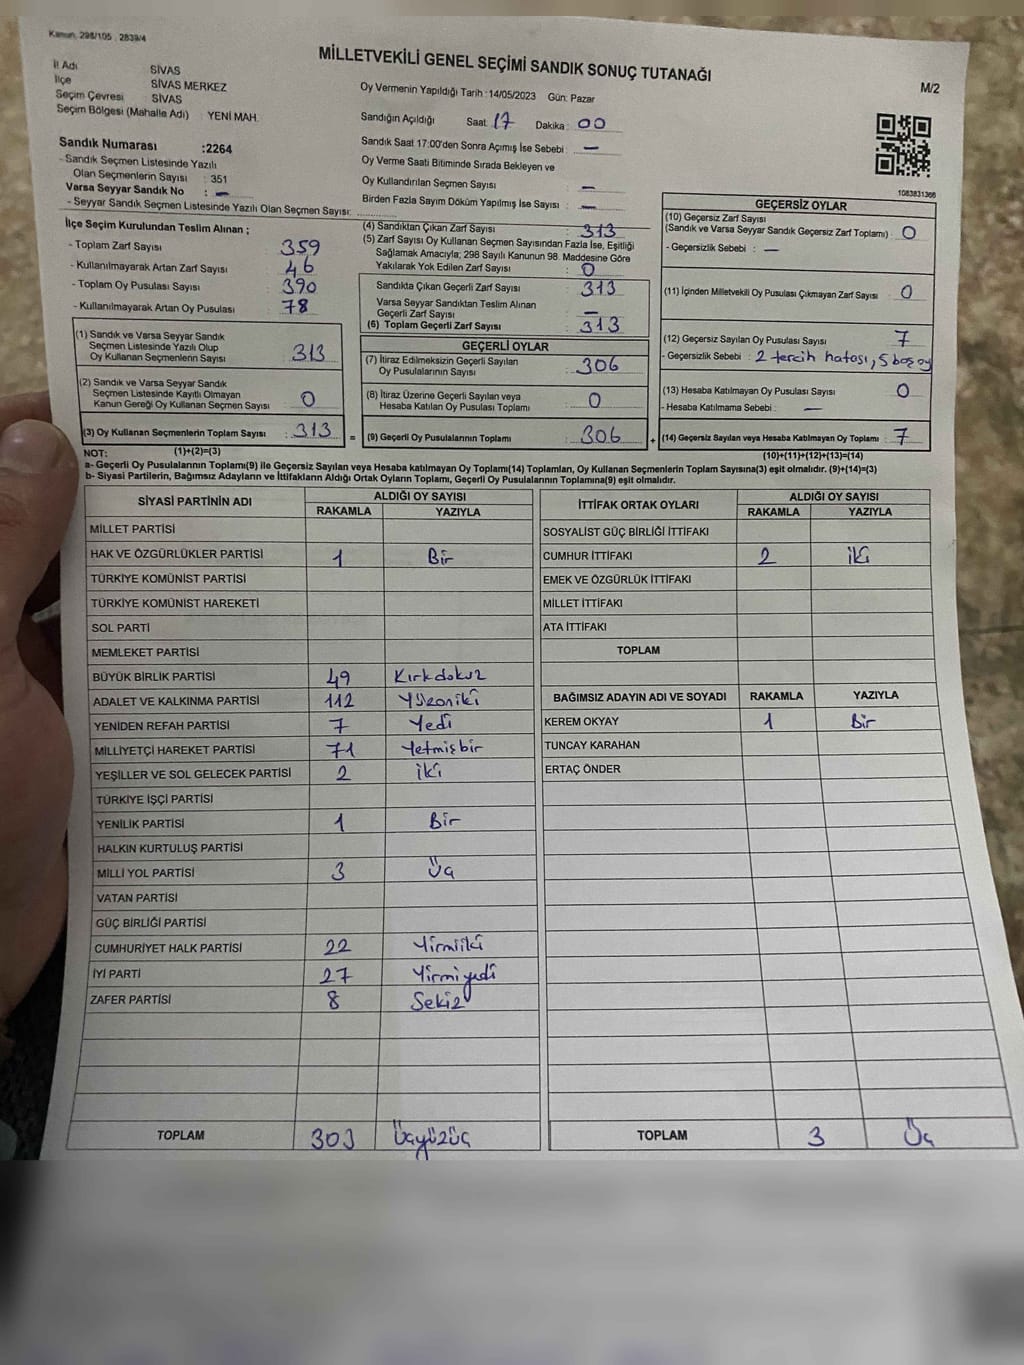 Kanun, 298/105 , 2839/4
MİLLETVEKİLİ GENEL SEÇİMİ SANDIK SONUÇ TUTANAĞI
M/2
İl Adı SİVAS
İlçe SİVAS MERKEZ
Seçim Çevresi SİVAS
Seçim Bölgesi (Mahalle Adı) : YENİ MAH.
Oy Vermenin Yapıldığı Tarih :14/05/2023 Gün: Pazar
Sandığın Açıldığı Saat: 17 Dakika : 00
Sandık Numarası :2264
- Sandık Seçmen Listesinde Yazılı
Olan Seçmenlerin Sayısı : 351
Varsa Seyyar Sandık No : —
- Seyyar Sandık Seçmen Listesinde Yazılı Olan Seçmen Sayısı:
Sandık Saat 17:00'den Sonra Açımış İse Sebebi : —
Oy Verme Saati Bitiminde Sırada Bekleyen ve
Oy Kullandırılan Seçmen Sayısı : —
Birden Fazla Sayım Döküm Yapılmış İse Sayısı : —
1083831366
İlçe Seçim Kurulundan Teslim Alınan ;
- Toplam Zarf Sayısı : 359
- Kullanılmayarak Artan Zarf Sayısı : 46
- Toplam Oy Pusulası Sayısı : 390
- Kullanılmayarak Artan Oy Pusulası : 78
(1) Sandık ve Varsa Seyyar Sandık
Seçmen Listesinde Yazılı Olup
Oy Kullanan Seçmenlerin Sayısı : 313
(2) Sandık ve Varsa Seyyar Sandık
Seçmen Listesinde Kayıtlı Olmayan
Kanun Gereği Oy Kullanan Seçmen Sayısı : 0
(3) Oy Kullanan Seçmenlerin Toplam Sayısı : 313
(1)+(2)=(3)
(4) Sandıktan Çıkan Zarf Sayısı : 313
(5) Zarf Sayısı Oy Kullanan Seçmen Sayısından Fazla İse, Eşitliği
Sağlamak Amacıyla; 298 Sayılı Kanunun 98. Maddesine Göre
Yakılarak Yok Edilen Zarf Sayısı : 0
Sandıkta Çıkan Geçerli Zarf Sayısı : 313
Varsa Seyyar Sandıktan Teslim Alınan
Geçerli Zarf Sayısı : —
(6) Toplam Geçerli Zarf Sayısı : 313
GEÇERLİ OYLAR
(7) İtiraz Edilmeksizin Geçerli Sayılan
Oy Pusulalarının Sayısı : 306
(8) İtiraz Üzerine Geçerli Sayılan veya
Hesaba Katılan Oy Pusulası Toplamı : 0
= (9) Geçerli Oy Pusulalarının Toplamı : 306 +
GEÇERSİZ OYLAR
(10) Geçersiz Zarf Sayısı
(Sandık ve Varsa Seyyar Sandık Geçersiz Zarf Toplamı) : 0
- Geçersizlik Sebebi : —
(11) İçinden Milletvekili Oy Pusulası Çıkmayan Zarf Sayısı : 0
(12) Geçersiz Sayılan Oy Pusulası Sayısı : 7
- Geçersizlik Sebebi : 2 tercih hatası, 5 boş oy
(13) Hesaba Katılmayan Oy Pusulası Sayısı : 0
- Hesaba Katılmama Sebebi : —
(14) Geçersiz Sayılan veya Hesaba Katılmayan Oy Toplamı : 7
(10)+(11)+(12)+(13)=(14)
NOT:
a- Geçerli Oy Pusulalarının Toplamı(9) ile Geçersiz Sayılan veya Hesaba katılmayan Oy Toplamı(14) Toplamları, Oy Kullanan Seçmenlerin Toplam Sayısına(3) eşit olmalıdır. (9)+(14)=(3)
b- Siyasi Partilerin, Bağımsız Adayların ve İttifakların Aldığı Ortak Oyların Toplamı, Geçerli Oy Pusulalarının Toplamına(9) eşit olmalıdır.
SİYASİ PARTİNİN ADI ALDIĞI OY SAYISI
RAKAMLA YAZIYLA
MİLLET PARTİSİ
HAK VE ÖZGÜRLÜKLER PARTİSİ 1 Bir
TÜRKİYE KOMÜNİST PARTİSİ
TÜRKİYE KOMÜNİST HAREKETİ
SOL PARTİ
MEMLEKET PARTİSİ
BÜYÜK BİRLİK PARTİSİ 49 Kırkdokuz
ADALET VE KALKINMA PARTİSİ 112 Yüzoniki
YENİDEN REFAH PARTİSİ 7 Yedi
MİLLİYETÇİ HAREKET PARTİSİ 71 Yetmişbir
YEŞİLLER VE SOL GELECEK PARTİSİ 2 iki
TÜRKİYE İŞÇİ PARTİSİ
YENİLİK PARTİSİ 1 Bir
HALKIN KURTULUŞ PARTİSİ
MİLLİ YOL PARTİSİ 3 Üç
VATAN PARTİSİ
GÜÇ BİRLİĞİ PARTİSİ
CUMHURİYET HALK PARTİSİ 22 Yirmiiki
İYİ PARTİ 27 Yirmiyedi
ZAFER PARTİSİ 8 Sekiz
TOPLAM 303 Üçyüzüç
İTTİFAK ORTAK OYLARI ALDIĞI OY SAYISI
RAKAMLA YAZIYLA
SOSYALİST GÜÇ BİRLİĞİ İTTİFAKI
CUMHUR İTTİFAKI 2 iki
EMEK VE ÖZGÜRLÜK İTTİFAKI
MİLLET İTTİFAKI
ATA İTTİFAKI
TOPLAM
BAĞIMSIZ ADAYIN ADI VE SOYADI RAKAMLA YAZIYLA
KEREM OKYAY 1 Bir
TUNCAY KARAHAN
ERTAÇ ÖNDER
TOPLAM 3 Üç